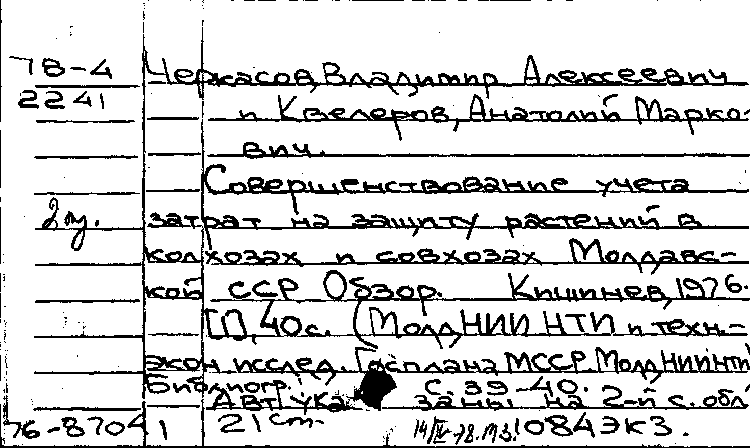 78-4 Черкасов, Владимир Алексеевич
2241 и Квелеров, Анатолий Марко-
вич.
Совершенствование учета
2 экз. затрат на защиту растений в
колхозах и совхозах Молдавс-
кой ССР Обзор. Кишинев, 1976.
[1], 40с. (Молд.НИИ НТИ и техн.-
экон. исслед. Госплана МССР. МолдНИИНТИ
Библиогр.: с. 39-40.
Авт. ука заны на 2-й с. обл
76-87041 21 cm. 14/IV-78. М.З. 1084 экз.